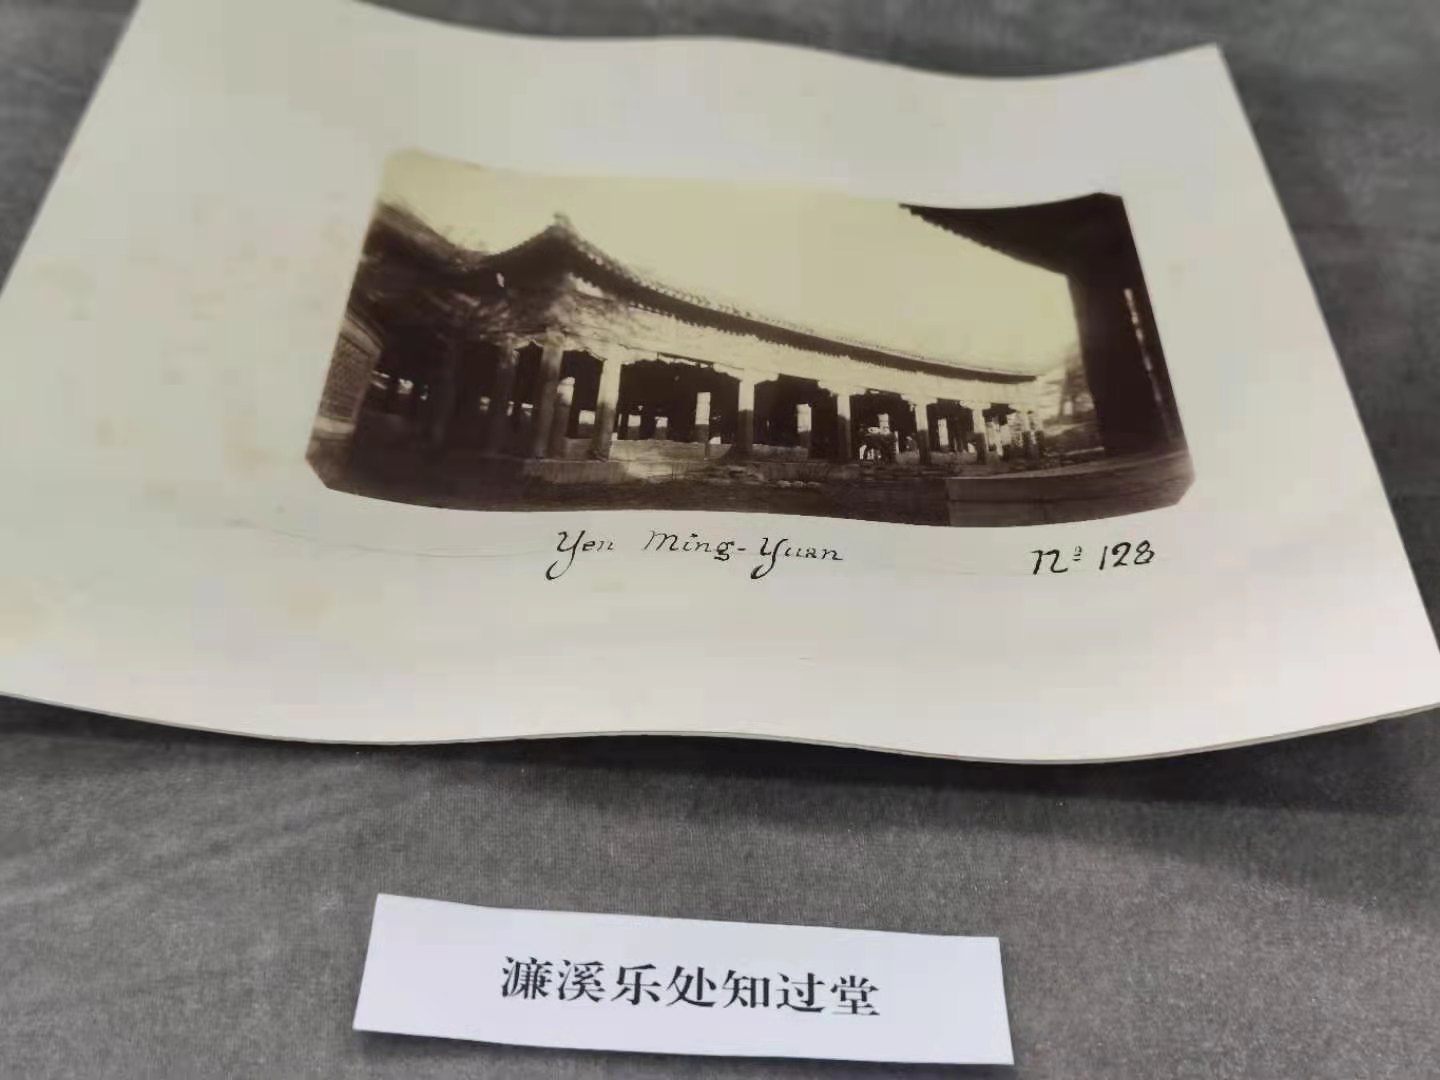 Yen Ming-Yuan Nº 128
濂溪乐处知过堂